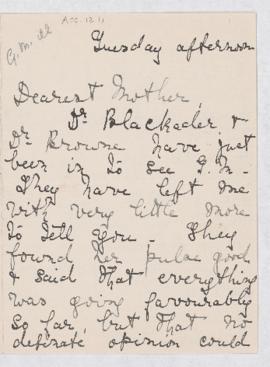 Acc. 1211
G.M. ill
Tuesday afternoon
Dearest Mother,
Dr. Blackader &
Dr. Browne have just
been in to see G.M.
They have left me
with very little more
to tell you - They
found her pulse good
& said that everything
was going favourably
so far, but that no
definate opinion could